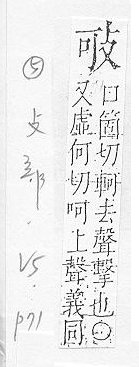 㪃
口箇切軻去聲擊也○
又虛何切呵上聲義同
⑤攴部.V5.
p71